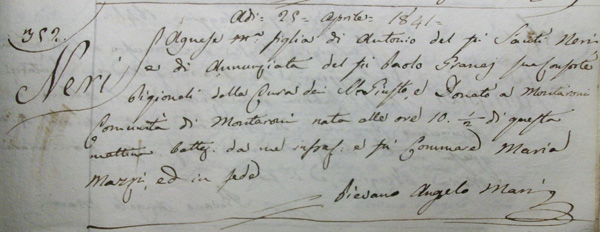 Adi: 25 = Aprile = 1841 =
352.
Neri
Agnese Ma figlia di Antonio del fù Santi Neri
e di Annunziata del fù Paolo Granaj sua Consorte
Pigionali della Cura dei SS Giusto, e Donato a Montaroni
Comunità di Montaroni nata alle ore 10. 1/2 di questa
mattina battz. da me infras. e fù Commare Maria
Mazzi, ed in fede
Pievano Angelo Marj